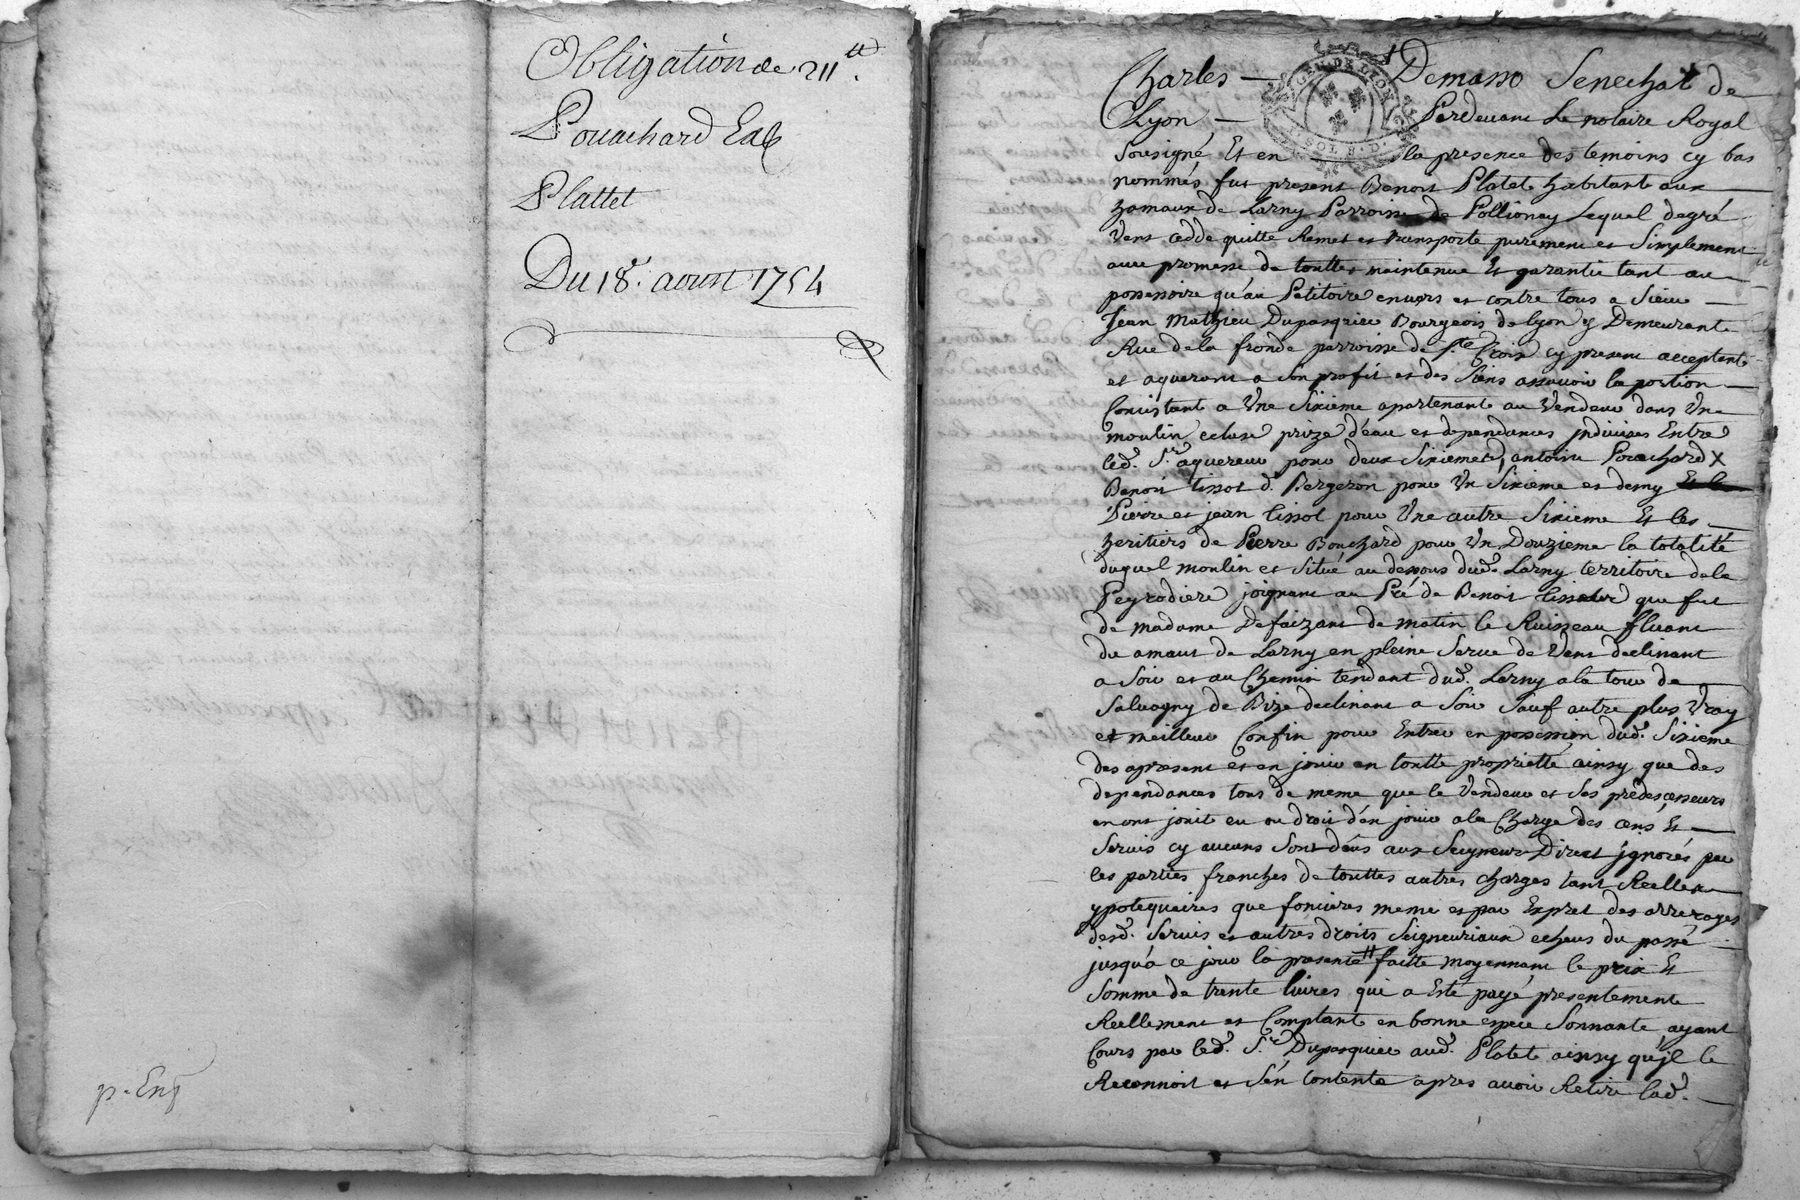 Obligation de 211ᵗᵗ.
Pouachard Ea
Plattet
Du 18ᵉ. aoust 1754
p. Enſ
Charles — Demasso Senechal de
GEN DE LYON
SOL 8 D.
Lyon — Pardevant Le notaire Royal
Sousigné Et en la presence des temoins cy bas
nommés fut present Benoit Platet habitant aux
hamaux de Larny Parroisse de Pollionay Lequel de gré
Vent cedde quitte Remet et transporte purement et Simplement
avec promesse de touttes maintenue Et garantie tant au
possessoire qu'au Petitoire envers et contre tous a Sieur
Jean Mathieu Dupasquier Bourgeois de lyon y Demeurant
Rue de la fronde parroisse de Sᵗᵉ Croix cy present acceptant
et aquerant a Son profit et des Siens assavoir la portion
Consistant a Une Sixieme apartenante au Vendeur dans Un
moulin ecluse prize d'eau et dependances jndivises Entre
led. Sʳ aquereur pour deux Sixiemes, antoine Pouachard X
Benoit tissot d. Bergeron pour Un Sixieme et demy
Pierre et jean tissot pour Une autre Sixieme Et les
heritiers de Pierre Bouchard pour Un Douzieme la totalité
duquel moulin et Situé au dessous dud. Larny territoire de la
Peyrodiere joignant au Pré de Benoit que fut
de madame Defaizant de matin le Ruisseau fluant
du amaut de Larny en pleine Serve de Vent declinant
a Soir et au Chemin tendant dud. Larny a la tour de
Salvagny de Bize declinant a Soir Sauf autre plus Vray
et meilleur Confin pour Entrer en possession dud. Sixieme
des apresent et en jouir en toutte proprietté ainsy que des
dependances tout de meme que le Vendeur et Ses predecesseurs
en ont jouit eu ou droit d'en jouir a la Charge des cens Et
Servis cy aucuns Sont dêus aux Seigneurs Direct jgnorés par
les parties franches de touttes autres charges tant Reelles
ypotequaires que foncieres meme et par Exprez des arrerages
desd. Servis et autres droits Seigneuriaux echeus du passé
jusqu'a ce jour la presente faitte moyennant le prix Et
Somme de trente livres qui a Eté payé presentement
Reellement et Comptant en bonne espece Sonnante ayant
Cours par led. Sʳ Dupasquier aud. Platet ainsy qu'jl le
Reconnoit et S'en Contente apres avoir Retiré lad.